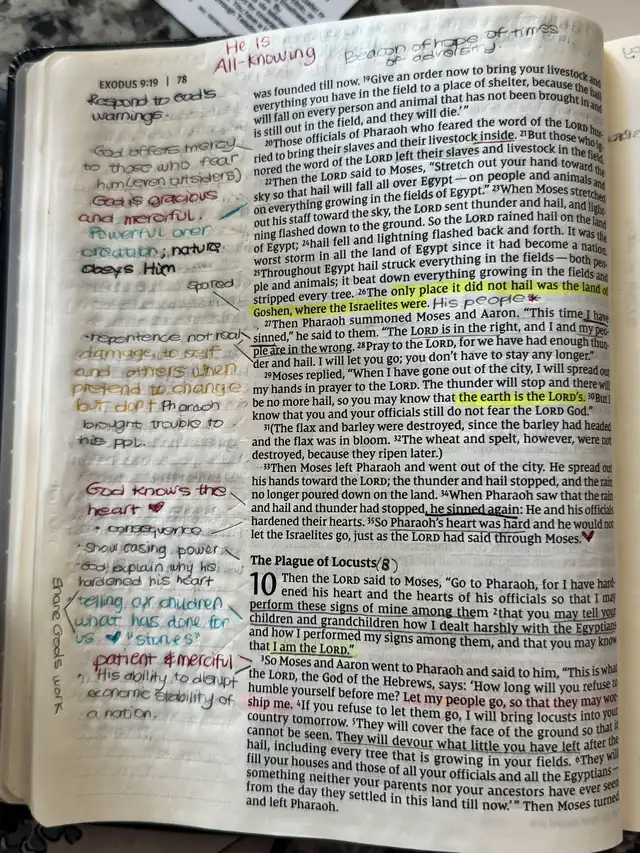 He is
All-knowing
Beacon of hope of times
of adversity.
EXODUS 9:19 | 78
Respond to God's
warnings.
God offers mercy
to those who fear
him (even outsiders)
God is gracious
and merciful.
Powerful over
creation; nature
obeys Him
spared
repentence not real
damage to self
and others when
pretend to change
but don't Pharaoh
brought trouble to
his ppl.
God knows the
heart ♥
• consequence
• show casing power
• God explain why he
hardened his heart
telling our children
what has done for
us ♥ "stories"
share God's work
patient & merciful
• His ability to disrupt
economic stability of
a nation.
was founded till now. 19Give an order now to bring your livestock and
everything you have in the field to a place of shelter, because the hail
will fall on every person and animal that has not been brought in and
is still out in the field, and they will die.'"
20Those officials of Pharaoh who feared the word of the LORD hur-
ried to bring their slaves and their livestock inside. 21But those who ig-
nored the word of the LORD left their slaves and livestock in the field.
22Then the LORD said to Moses, "Stretch out your hand toward the
sky so that hail will fall all over Egypt—on people and animals and
on everything growing in the fields of Egypt." 23When Moses stretched
out his staff toward the sky, the LORD sent thunder and hail, and light-
ning flashed down to the ground. So the LORD rained hail on the land
of Egypt; 24hail fell and lightning flashed back and forth. It was the
worst storm in all the land of Egypt since it had become a nation.
25Throughout Egypt hail struck everything in the fields—both peo-
ple and animals; it beat down everything growing in the fields and
stripped every tree. 26The only place it did not hail was the land of
Goshen, where the Israelites were. His people*
27Then Pharaoh summoned Moses and Aaron. "This time I have
sinned," he said to them. "The LORD is in the right, and I and my peo-
ple are in the wrong. 28Pray to the LORD, for we have had enough thun-
der and hail. I will let you go; you don't have to stay any longer."
29Moses replied, "When I have gone out of the city, I will spread out
my hands in prayer to the LORD. The thunder will stop and there will
be no more hail, so you may know that the earth is the LORD's. 30But I
know that you and your officials still do not fear the LORD God."
31(The flax and barley were destroyed, since the barley had headed
and the flax was in bloom. 32The wheat and spelt, however, were not
destroyed, because they ripen later.)
33Then Moses left Pharaoh and went out of the city. He spread out
his hands toward the LORD; the thunder and hail stopped, and the rain
no longer poured down on the land. 34When Pharaoh saw that the rain
and hail and thunder had stopped, he sinned again: He and his officials
hardened their hearts. 35So Pharaoh's heart was hard and he would not
let the Israelites go, just as the LORD had said through Moses. ♥
The Plague of Locusts (8)
10 Then the LORD said to Moses, "Go to Pharaoh, for I have hard-
ened his heart and the hearts of his officials so that I may
perform these signs of mine among them 2that you may tell your
children and grandchildren how I dealt harshly with the Egyptians
and how I performed my signs among them, and that you may know
that I am the LORD."
3So Moses and Aaron went to Pharaoh and said to him, "This is what
the LORD, the God of the Hebrews, says: 'How long will you refuse to
humble yourself before me? Let my people go, so that they may wor-
ship me. 4If you refuse to let them go, I will bring locusts into your
country tomorrow. 5They will cover the face of the ground so that it
cannot be seen. They will devour what little you have left after the
hail, including every tree that is growing in your fields. 6They will
fill your houses and those of all your officials and all the Egyptians—
something neither your parents nor your ancestors have ever seen
from the day they settled in this land till now.'" Then Moses turned
and left Pharaoh.